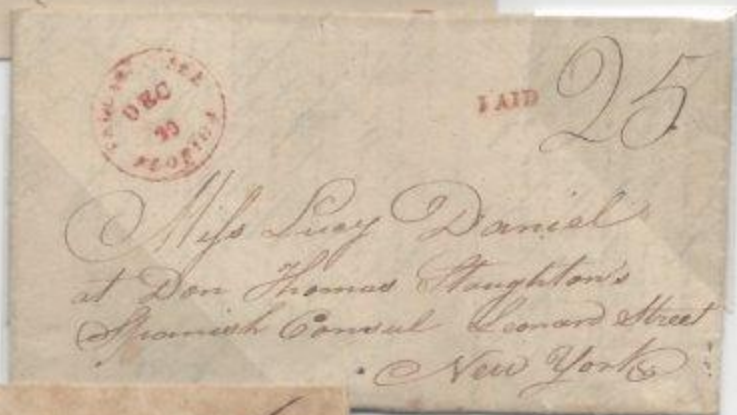 DEC
20
FLORIDA
PAID
25
Miss Lucy Daniel
at Don Thomas Stoughton's
Spanish Consul Leonard Street
New York